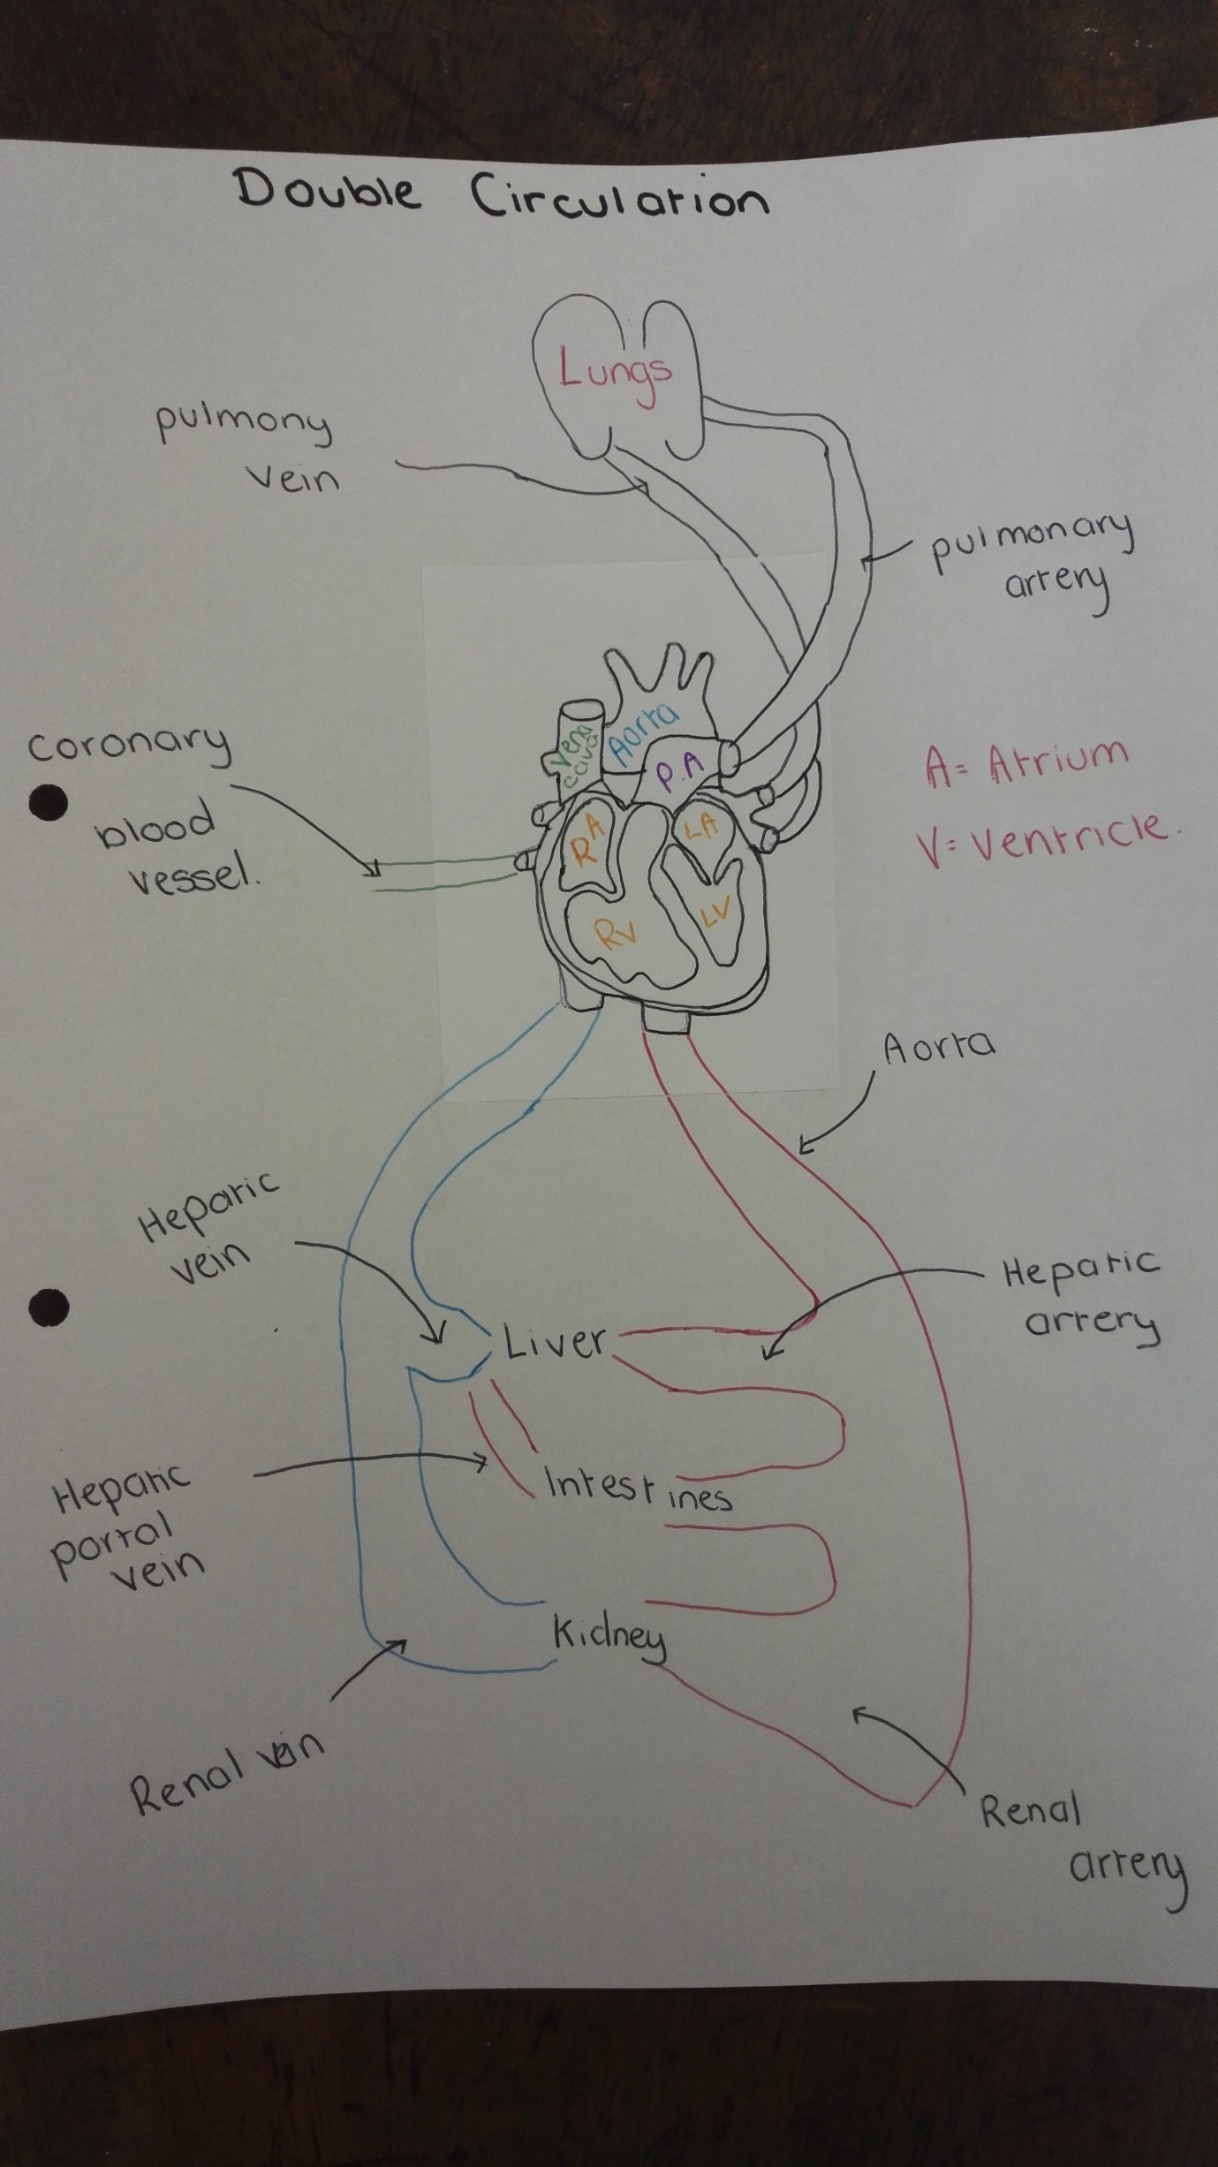 Double Circulation
Lungs
pulmony
vein
pulmonary
artery
coronary
blood
vessel.
Vena
cava
Aorta
P.A
A= Atrium
V= Ventricle.
RA
LA
RV
LV
Aorta
Heparic
vein
Heparic
artery
Liver
Heparic
portal
vein
Intestines
Kidney
Renal vein
Renal
artery